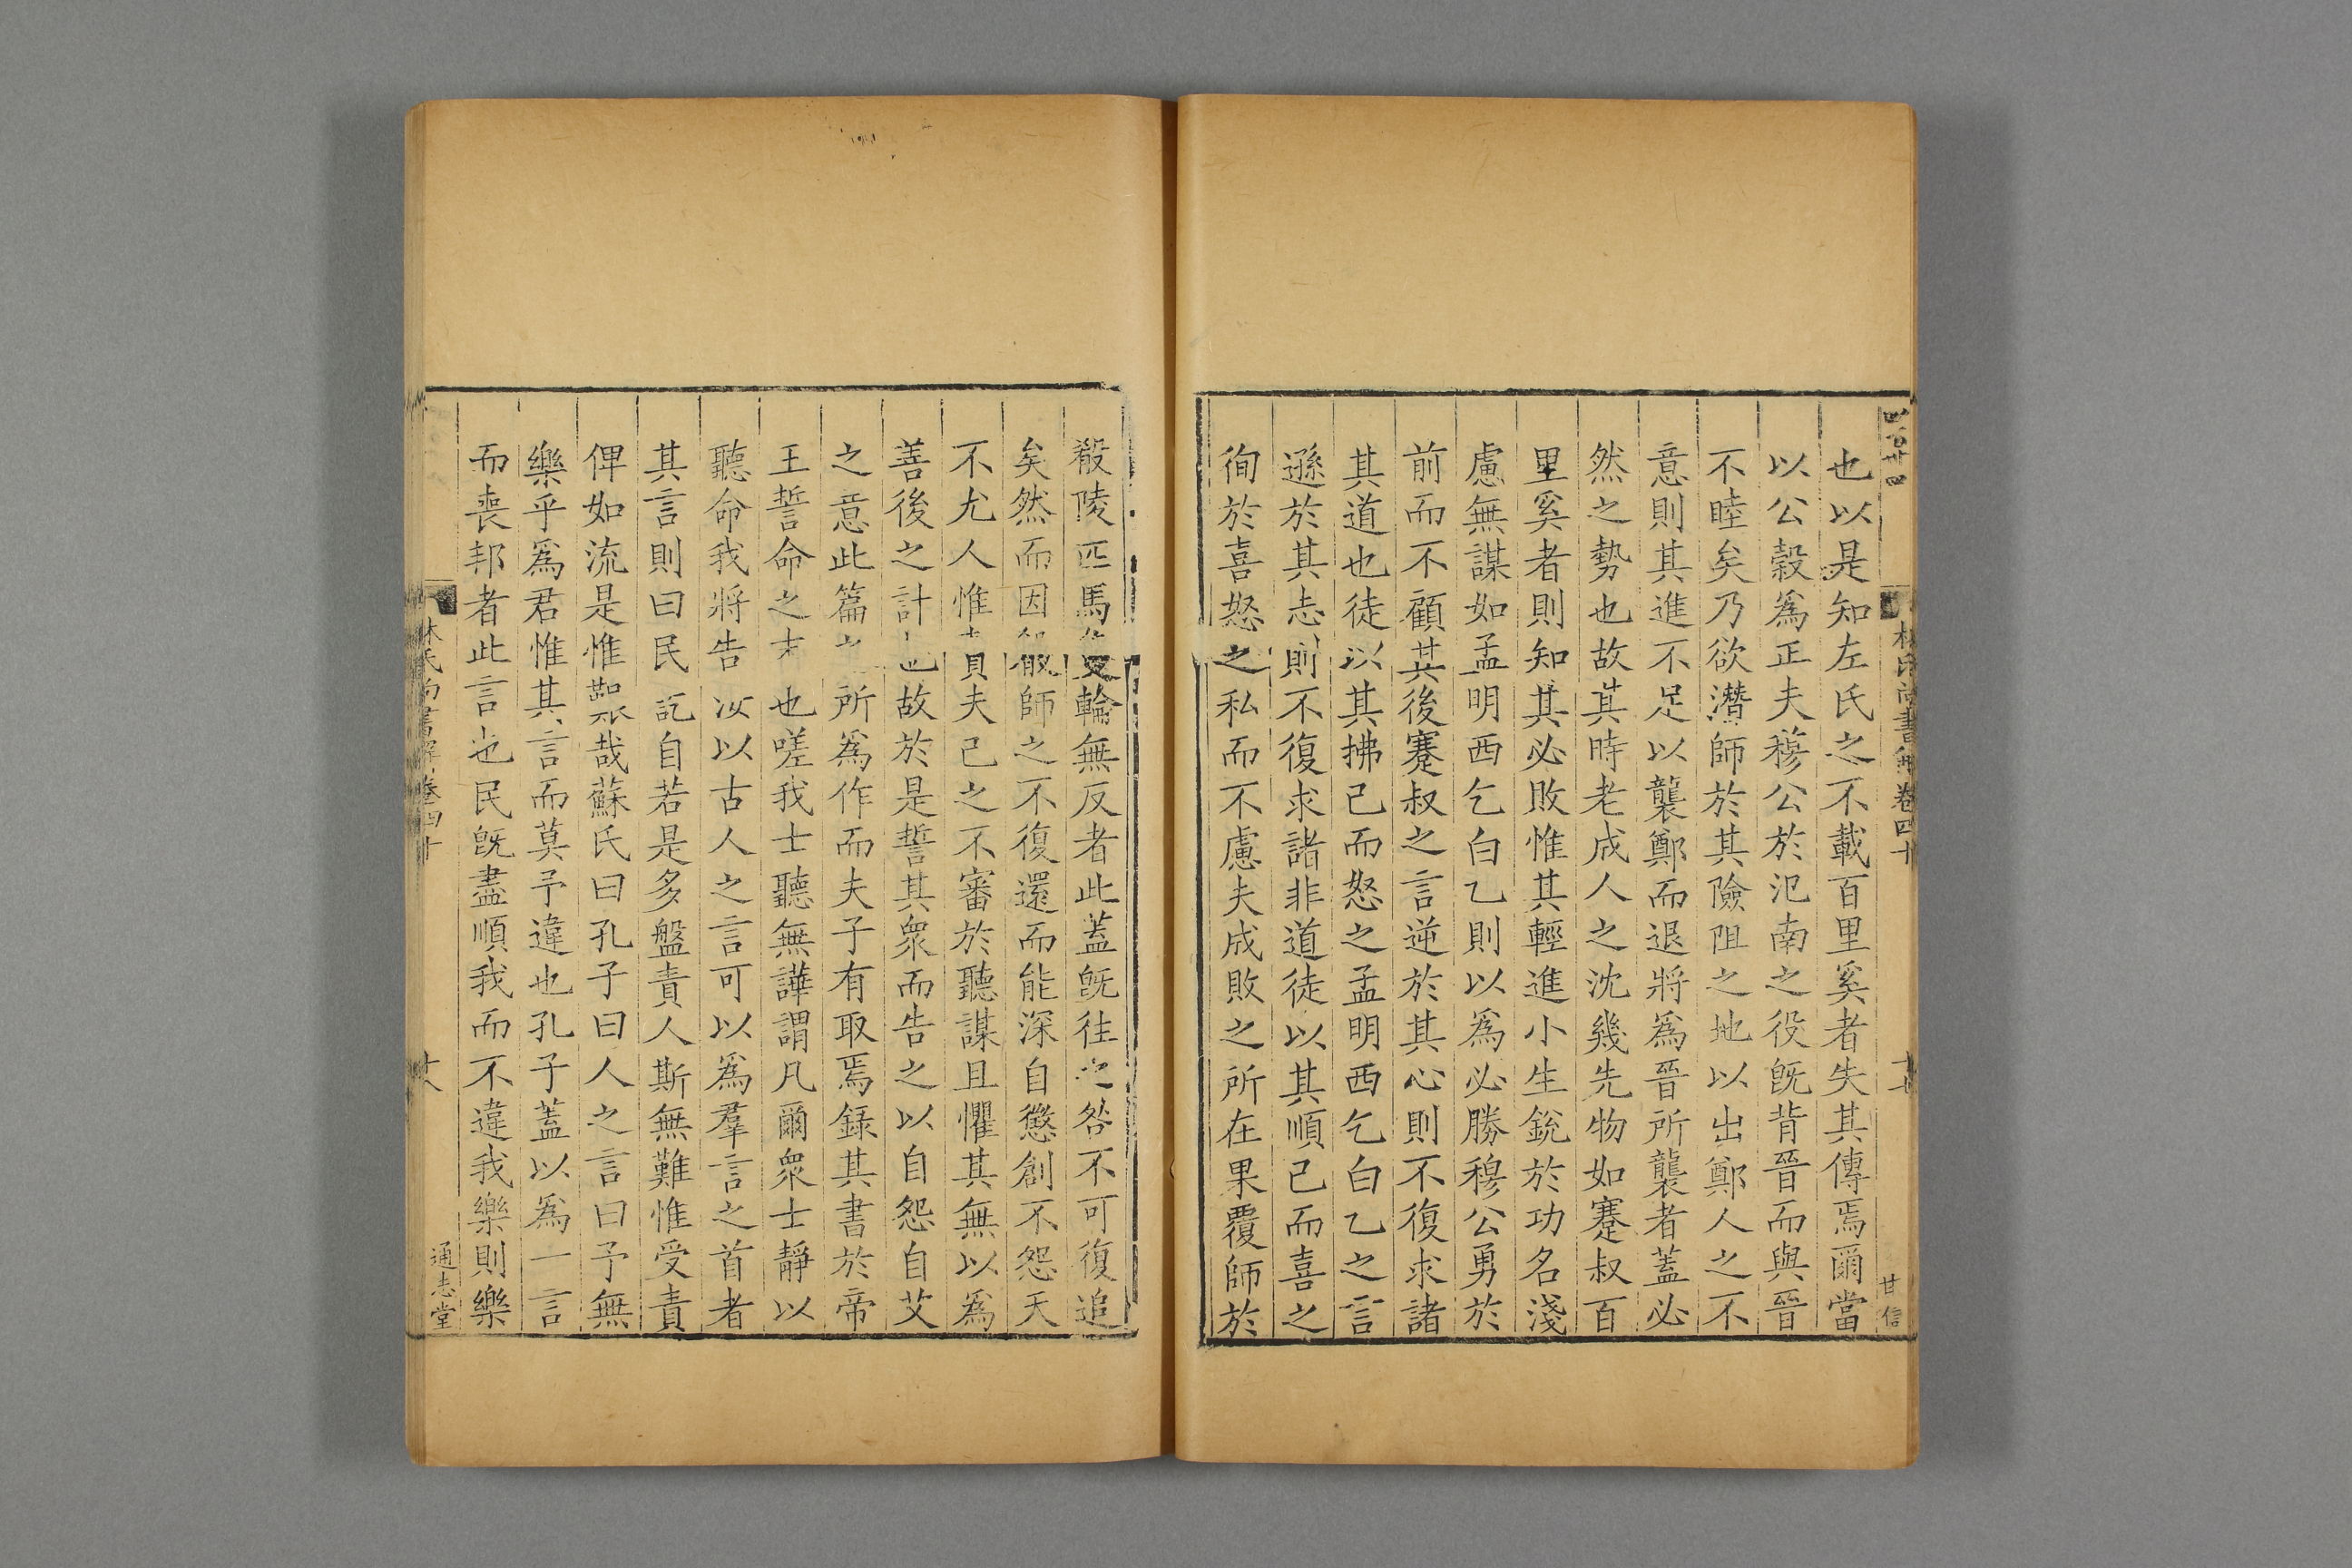 四百廿四
林氏尚書解卷四十
十七
甘信
也以是知左氏之不載百里奚者失其傳焉爾當
以公穀爲正夫穆公於氾南之役旣背晉而與晉
不睦矣乃欲潛師於其險阻之地以出鄭人之不
意則其進不足以襲鄭而退將爲晉所襲者蓋必
然之勢也故其時老成人之沈幾先物如蹇叔百
里奚者則知其必敗惟其輕進小生銳於功名淺
慮無謀如孟明西乞白乙則以爲必勝穆公勇於
前而不顧其後蹇叔之言逆於其心則不復求諸
其道也徒以其拂己而怒之孟明西乞白乙之言
遜於其志則不復求諸非道徒以其順己而喜之
徇於喜怒之私而不慮夫成敗之所在果覆師於
殽陵匹馬隻輪無反者此蓋旣往之咎不可復追
矣然而因敗師之不復還而能深自懲創不怨天
不尤人惟責夫己之不審於聽謀且懼其無以爲
善後之計也故於是誓其衆而告之以自怨自艾
之意此篇之所爲作而夫子有取焉錄其書於帝
王誓命之末也嗟我士聽無譁謂凡爾衆士靜以
聽命我將告汝以古人之言可以爲羣言之首者
其言則曰民訖自若是多盤責人斯無難惟受責
俾如流是惟艱哉蘇氏曰孔子曰人之言曰予無
樂乎爲君惟其言而莫予違也孔子蓋以爲一言
而喪邦者此言也民旣盡順我而不違我樂則樂
林氏尚書解卷四十
十八
通志堂